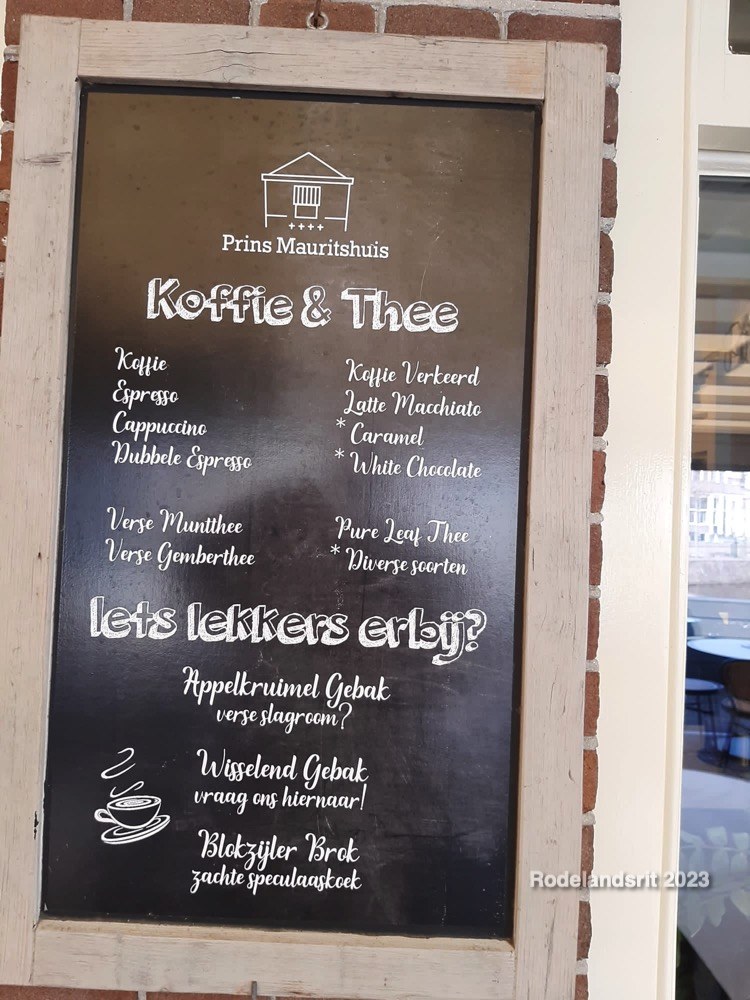 Prins Mauritshuis
Koffie & Thee
Koffie
Espresso
Cappuccino
Dubbele Espresso
Koffie Verkeerd
Latte Macchiato
* Caramel
* White Chocolate
Verse Muntthee
Verse Gemberthee
Pure Leaf Thee
* Diverse soorten
Iets lekkers erbij?
Appelkruimel Gebak
verse slagroom?
Wisselend Gebak
vraag ons hiernaar!
Blokzijler Brok
zachte speculaaskoek
Rodelandsrit 2023